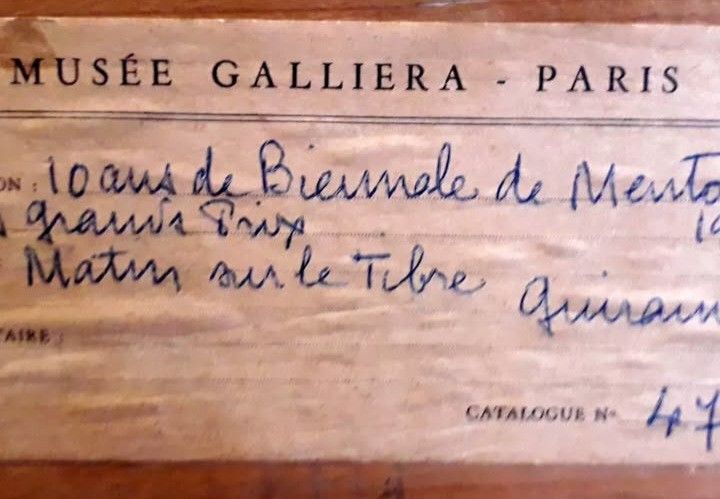 MUSÉE GALLIERA - PARIS
ON : 10 ans de Biennale de Mento
grands Prix 19
Matin sur le Tibre Guiram
TAIRE :
CATALOGUE N° 47